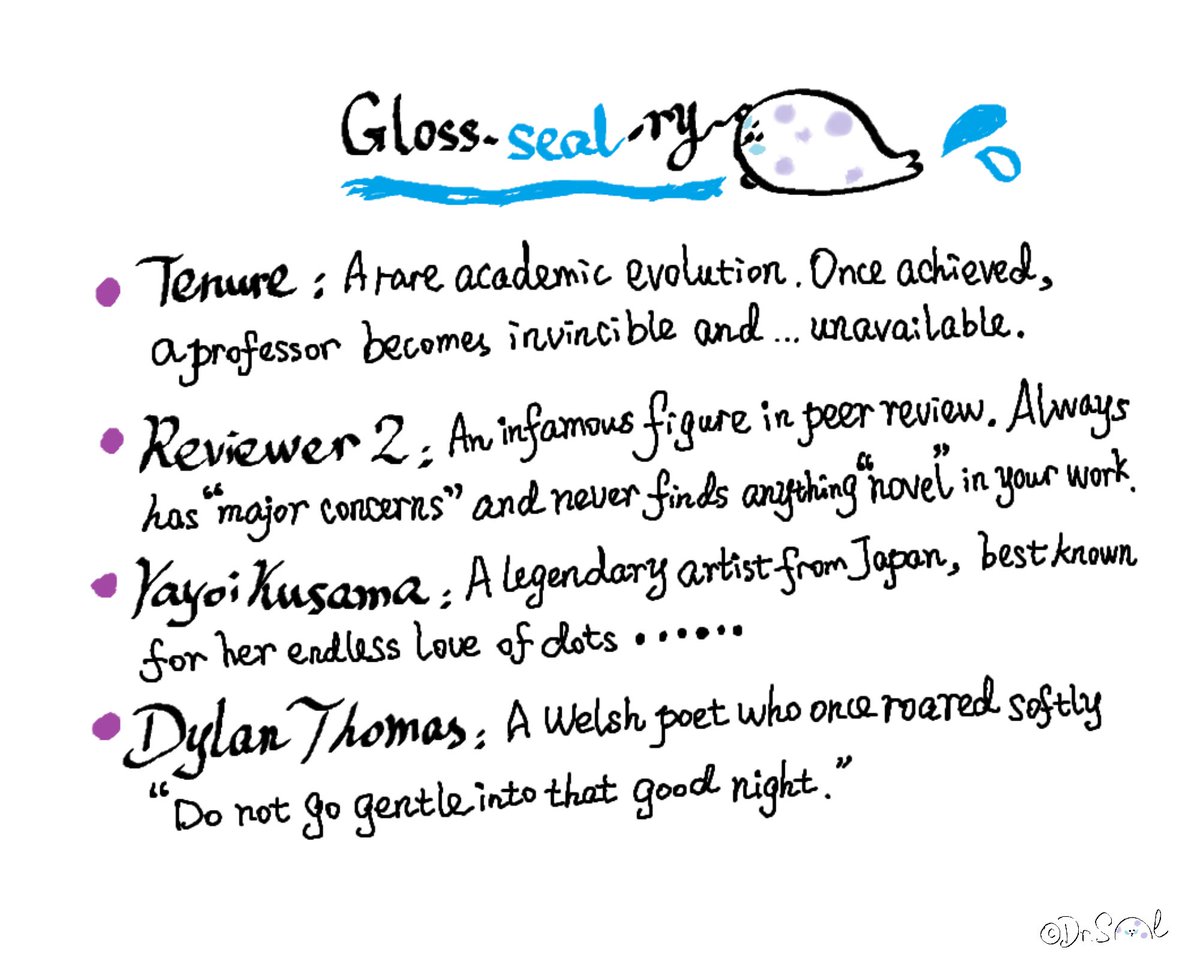 Gloss-seal-ry~
Tenure: A rare academic evolution. Once achieved,
a professor becomes invincible and ... unavailable.
Reviewer 2: An infamous figure in peer review. Always
has "major concerns" and never finds anything "novel" in your work.
Yayoi Kusama: A legendary artist from Japan, best known
for her endless love of dots ••••••
Dylan Thomas: A Welsh poet who once roared softly
"Do not go gentle into that good night."
©Dr.Seal